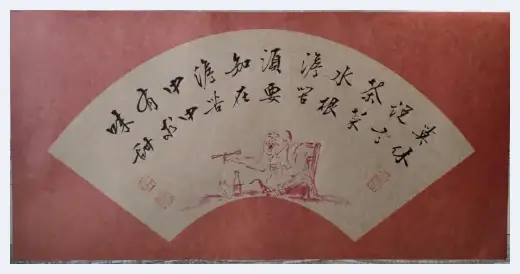 莫说茶水淡
休言菜根苦
须知淡中有味
要在苦中求